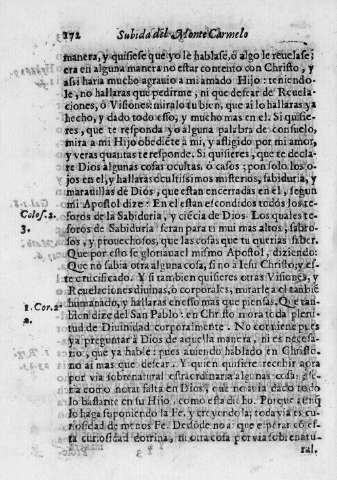 272 Subida del Monte Carmelo
manera, y quisiese que yo le hablase, ò algo le revelase; i
era en alguna manera no estar contento con Christo, y
asi haria mucho agravio a mi amado Hijo: teniendo-
le, no hallaras que pedirme, ni que desear de Revela-
ciones, ò Visiones: miralo tu bien, que ai lo hallaras ya
hecho, y dado todo eso, y mucho mas en el. Si quisie-
res, que te responda yo alguna palabra de consuelo,
mira a mi Hijo obediẽte à mi, y afligido por mi amor,
y veras quantas te responde. Si quisieres, que te decla-
re Dios algunas cosas ocultas, ò casos; pon solo los o-
jos en el, y hallaras ocultisimos misterios, sabiduria, y
maravillas de Dios, que estan encerradas en el, segun
mi Apostol dize: En el estan escondidos todos los te-
Colos. 2.
3.
soros de la Sabiduria, y ciẽcia de Dios. Los quales te-
soros de Sabiduria seran para ti mui mas altos, sabro-
sos, y provechosos, que las cosas que tu querias saber.
Que por esto se gloriava el mismo Apostol, diziendo:
Que no sabia otra alguna cosa, sino a Iesu Christo; y es-
1. Cor. 2.
2.
te crucificado. Y si tambien quisieres otras Visiones, y
Revelaciones divinas, ò corporales, mirale a el tambiẽ
humanado, y hallaras en eso mas que piensas. Que tan-
bien dize del San Pablo: en Christo mora toda pleni-
tud de Divinidad corporalmente. No conviene pues
ya preguntar à Dios de aquella manera, ni es necesa-
rio, que ya hable: pues aviendo hablado en Christo
no ai mas que desear. Y quien quisiere recebir aora
por via sobrenatural
como notar falta en Dios, que no aia dado todo
lo bastante en su Hijo, como esta dicho. Porque aunq̃
lo haga suponiendo la Fe, y creyendola; todavia es cu-
riosidad de menos Fe. De dõde no ai que esperar cõ es-
ta curiosidad dotrina, ni otra cosa por via sobrenatu-
ral.